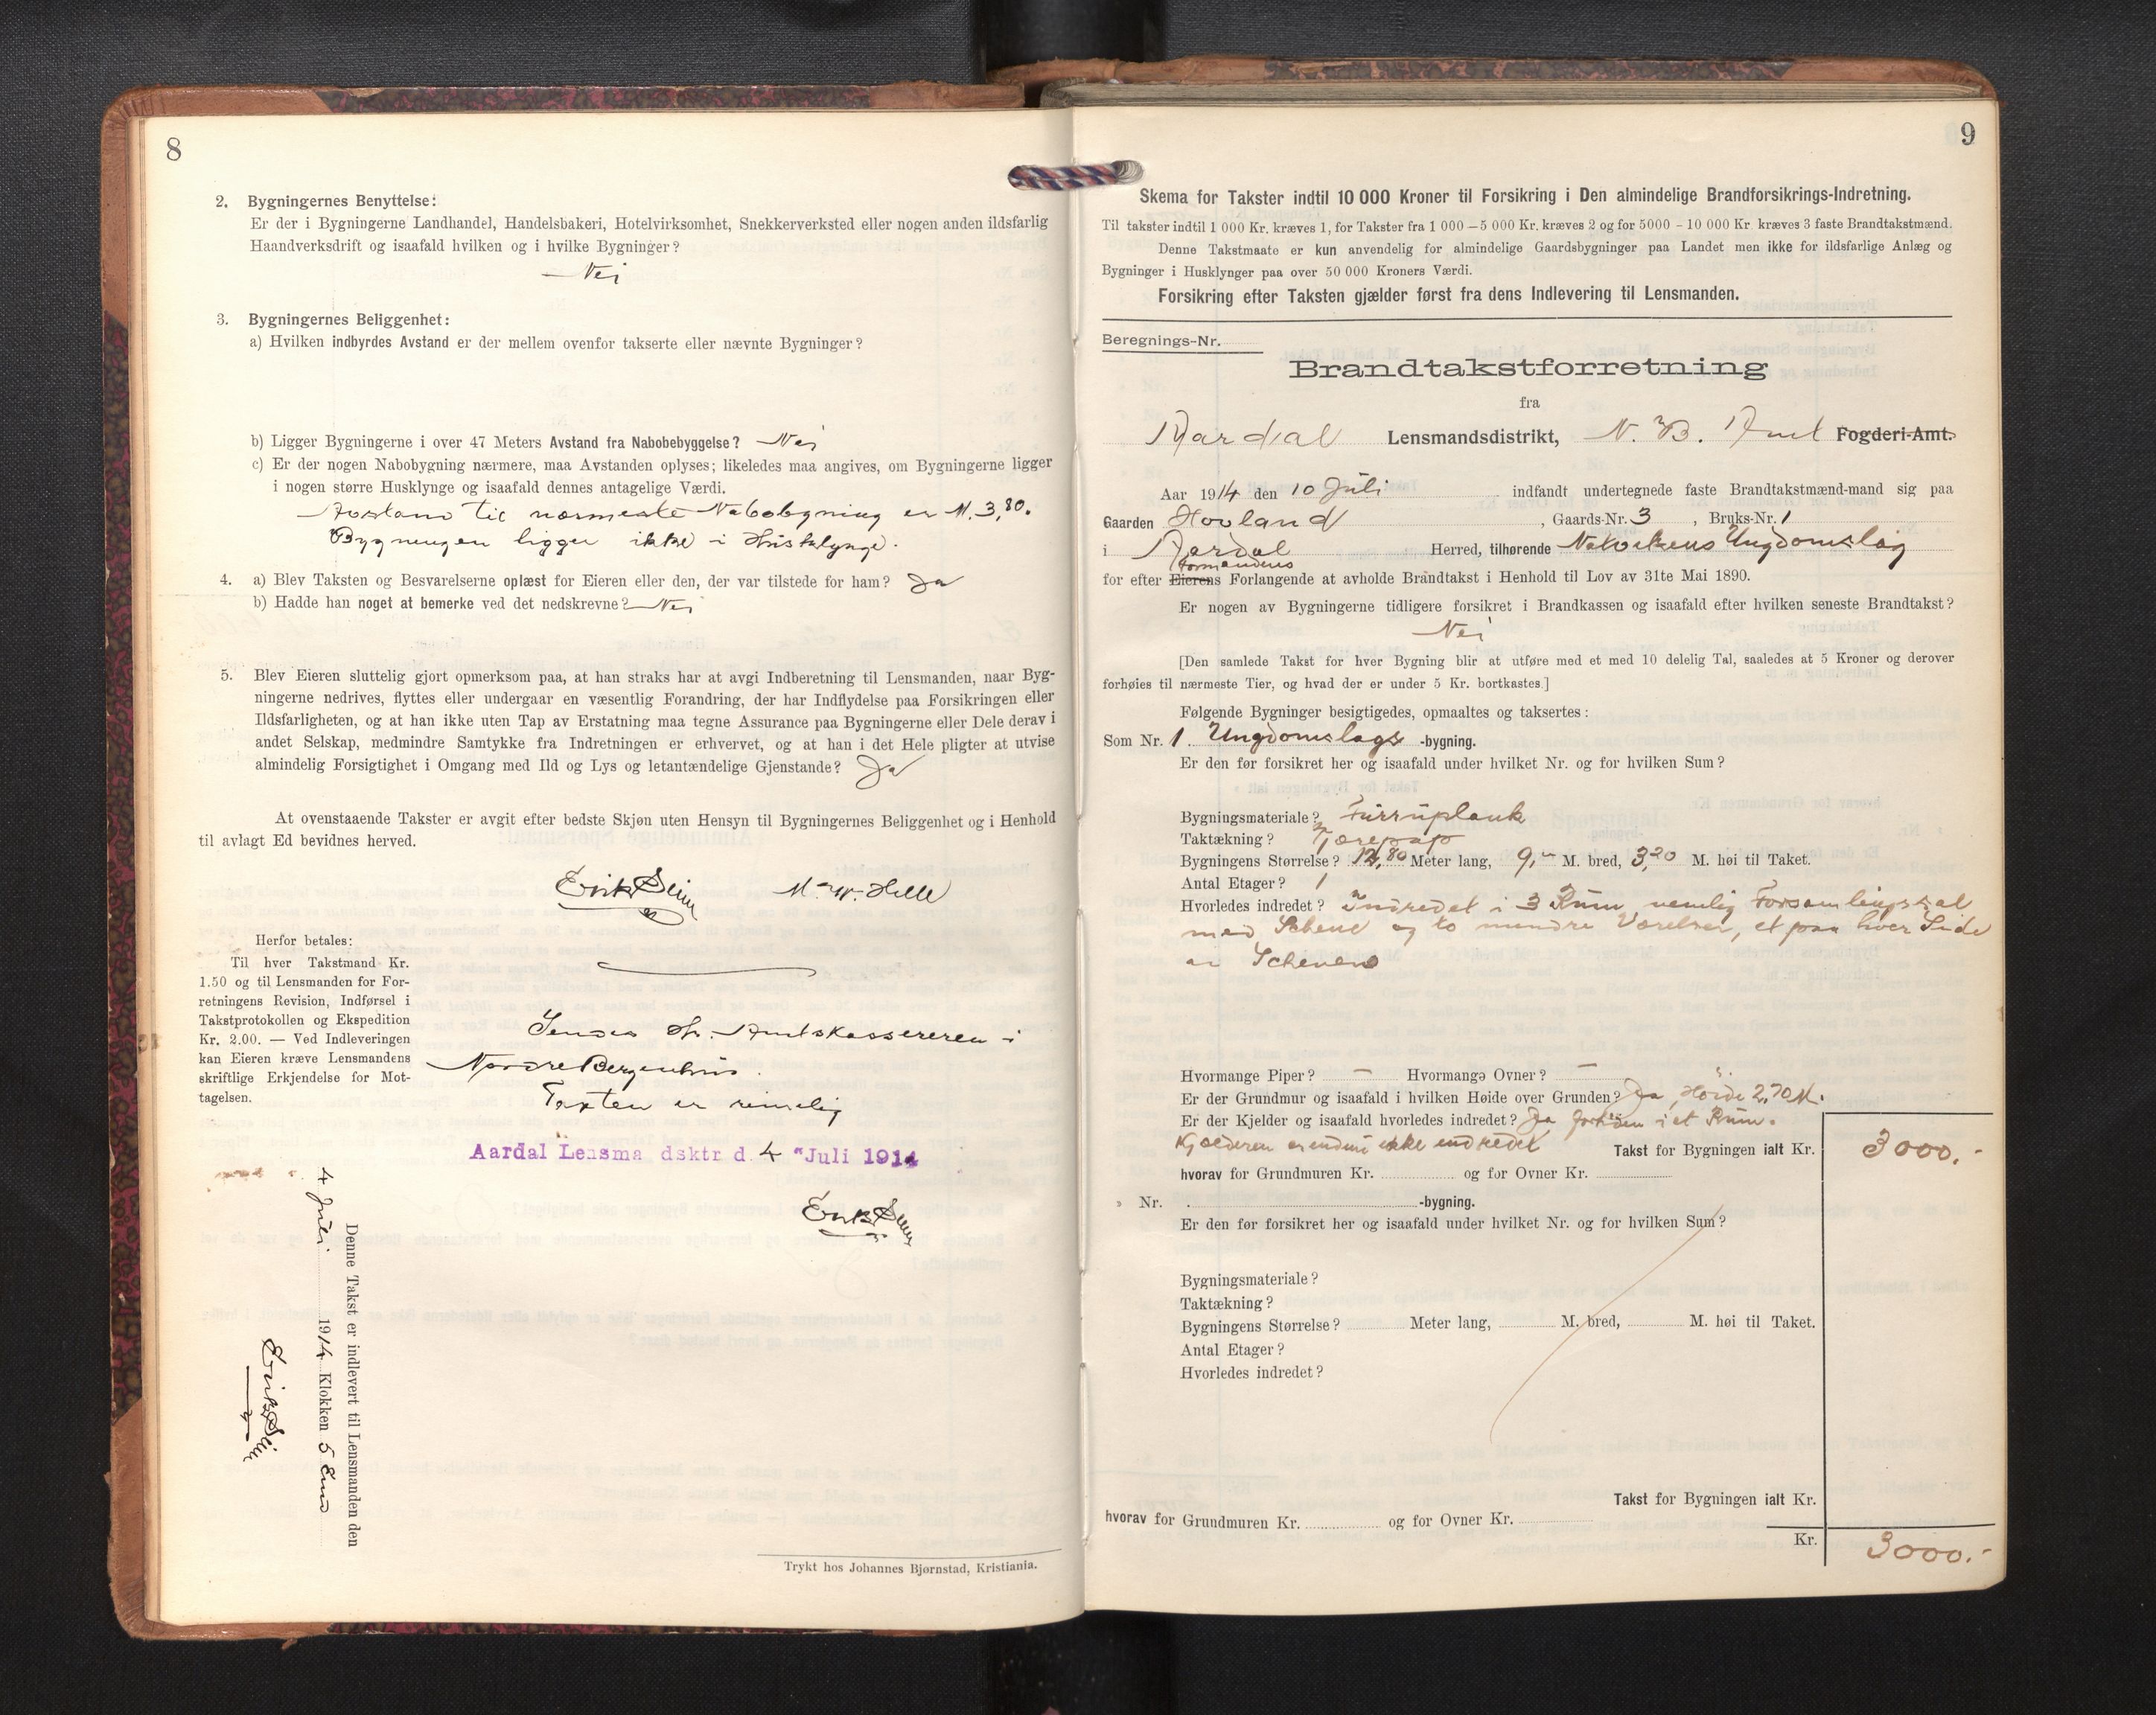 8
2. Bygningernes Benyttelse:
Er der i Bygningerne Landhandel, Handelsbakeri, Hotelvirksomhet, Snekkerverksted eller nogen anden ildsfarlig
Haandverksdrift og isaafald hvilken og i hvilke Bygninger?
Nei
3. Bygningernes Beliggenhet:
a) Hvilken indbyrdes Avstand er der mellem ovenfor takserte eller nævnte Bygninger?
b) Ligger Bygningerne i over 47 Meters Avstand fra Nabobebyggelse? Nei
c) Er der nogen Nabobygning nærmere, maa Avstanden oplyses; likeledes maa angives, om Bygningerne ligger
i nogen større Husklynge og isaafald dennes antagelige Værdi.
Avstand til nærmeste Nabobygning er M. 3,80.
Bygningen ligger ikke i Husklynge.
4. a) Blev Taksten og Besvarelserne oplæst for Eieren eller den, der var tilstede for ham? Ja
b) Hadde han noget at bemerke ved det nedskrevne? Nei
5. Blev Eieren sluttelig gjort opmerksom paa, at han straks har at avgi Indberetning til Lensmanden, naar Byg-
ningerne nedrives, flyttes eller undergaar en væsentlig Forandring, der har Indflydelse paa Forsikringen eller
Ildsfarligheten, og at han ikke uten Tap av Erstatning maa tegne Assurance paa Bygningerne eller Dele derav i
andet Selskap, medmindre Samtykke fra Indretningen er erhvervet, og at han i det Hele pligter at utvise
almindelig Forsigtighet i Omgang med Ild og Lys og letantændelige Gjenstande? Ja
At ovenstaaende Takster er avgit efter bedste Skjøn uten Hensyn til Bygningernes Beliggenhet og i Henhold
til avlagt Ed bevidnes herved.
Erik Seim M. W. Helle
Herfor betales:
Til hver Takstmand Kr.
1.50 og til Lensmanden for For-
retningens Revision, Indførsel i
Takstprotokollen og Ekspedition
Kr. 2.00. — Ved Indleveringen
kan Eieren kræve Lensmandens
skriftlige Erkjendelse for Mot-
tagelsen.
Sendes Hr. Amtskassereren i
Nordre Bergenhus.
Taxten er rimelig
Aardal Lensma dsktr d. 4 Juli 1914
Erik Seim
Denne Takst er indlevert til Lensmanden den
4 Juli 1914 Klokken 5 Emd
Erik Seim
Trykt hos Johannes Bjørnstad, Kristiania.
9
Skema for Takster indtil 10 000 Kroner til Forsikring i Den almindelige Brandforsikrings-Indretning.
Til takster indtil 1 000 Kr. kræves 1, for Takster fra 1 000 – 5 000 Kr. kræves 2 og for 5000 – 10 000 Kr. kræves 3 faste Brandtakstmænd.
Denne Takstmaate er kun anvendelig for almindelige Gaardsbygninger paa Landet men ikke for ildsfarlige Anlæg og
Bygninger i Husklynger paa over 50 000 Kroners Værdi.
Forsikring efter Taksten gjælder først fra dens Indlevering til Lensmanden.
Beregnings-Nr.
Brandtakstforretning
fra
Aardal Lensmandsdistrikt, N. B. Amt Fogderi-Amt.
Aar 1914 den 10 Juli indfandt undertegnede faste Brandtakstmænd-mand sig paa
Gaarden Hovland, Gaards-Nr. 3, Bruks-Nr. 1
i Aardal Herred, tilhørende Ungdomslag
Formandens
for efter Eierens Forlangende at avholde Brandtakst i Henhold til Lov av 31te Mai 1890.
Er nogen av Bygningerne tidligere forsikret i Brandkassen og isaafald efter hvilken seneste Brandtakst?
Nei
[Den samlede Takst for hver Bygning blir at utføre med et med 10 delelig Tal, saaledes at 5 Kroner og derover
forhøies til nærmeste Tier, og hvad der er under 5 Kr. bortkastes.]
Følgende Bygninger besigtigedes, opmaaltes og taksertes:
Som Nr. 1. Ungdomslags -bygning.
Er den før forsikret her og isaafald under hvilket Nr. og for hvilken Sum?
Bygningsmateriale? Furruplank
Taktækning? Tjærepap
Bygningens Størrelse? 12,80 Meter lang, 9,— M. bred, 3,20 M. høi til Taket.
Antal Etager? 1
Hvorledes indredet? Indredet i 3 Rum, nemlig Forsamlingssal
med Schene og to mindre Værelser, et paa hver Side
av Schenen
Hvormange Piper? — Hvormange Ovner? —
Er der Grundmur og isaafald i hvilken Høide over Grunden? Ja, Høide 2,70 M.
Er der Kjelder og isaafald hvorledes indredet? Ja i et Rum.
Kjælderen er endnu ikke indredet Takst for Bygningen ialt Kr. 3000.-
hvorav for Grundmuren Kr. og for Ovner Kr.
» Nr. . -bygning.
Er den før forsikret her og isaafald under hvilket Nr. og for hvilken Sum?
Bygningsmateriale?
Taktækning?
Bygningens Størrelse? Meter lang, M. bred, M. høi til Taket.
Antal Etager?
Hvorledes indredet?
Takst for Bygningen ialt Kr.
hvorav for Grundmuren Kr. og for Ovner Kr.
Kr. 3000.-